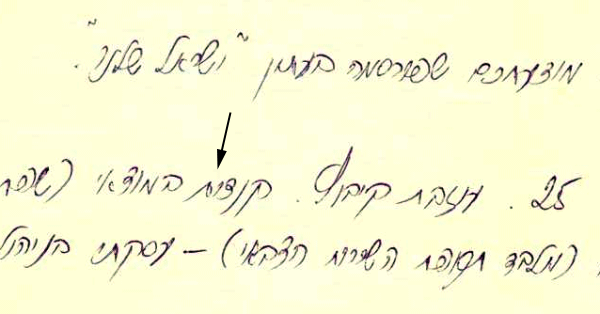 מודעתכם שפורסמה בעתון "ישראל שלנו".
25. עוזבת קיבוץ. קצינת במודיעי (שפת
(מלבד תקופת השירות הצבאי) – עסקתי בניהול